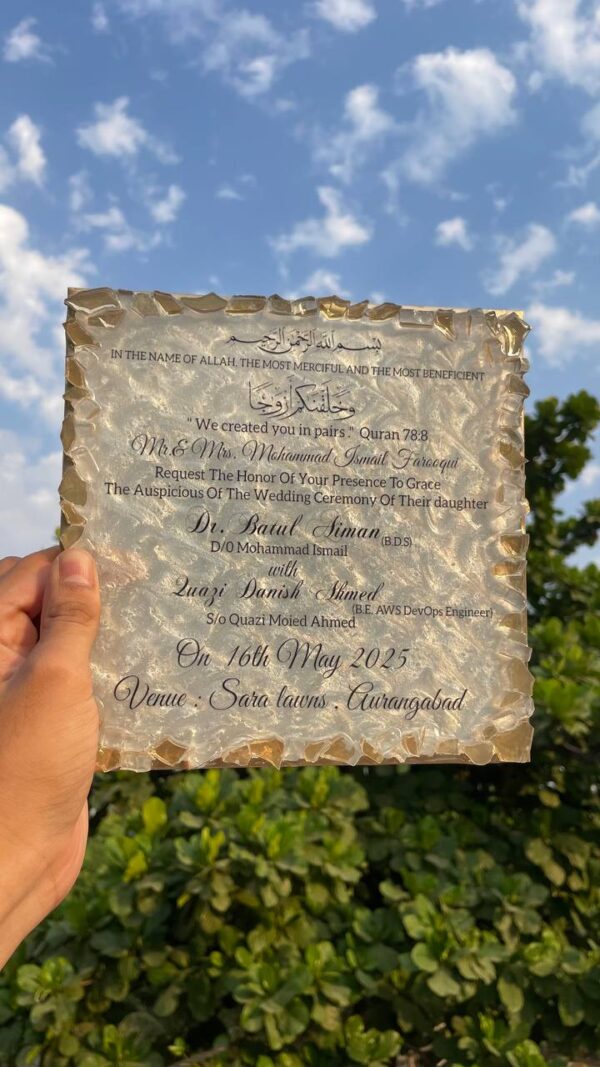 بسم الله الرحمن الرحيم
IN THE NAME OF ALLAH. THE MOST MERCIFUL AND THE MOST BENEFICIENT
وخلقنكم أزوجا
" We created you in pairs ." Quran 78:8
Mr.& Mrs. Mohammad Ismail Farooqui
Request The Honor Of Your Presence To Grace
The Auspicious Of The Wedding Ceremony Of Their daughter
Dr. Batul Aiman (B.D.S)
D/0 Mohammad Ismail
with
Quazi Danish Ahmed
(B.E. AWS DevOps Engineer)
S/o Quazi Moied Ahmed
On 16th May 2025
Venue : Sara lawns . Aurangabad